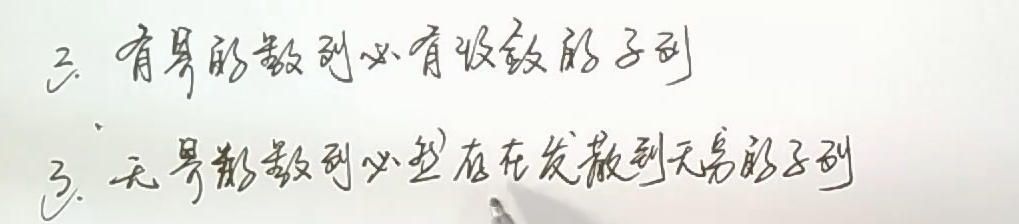 2. 有界的数列必有收敛的子列
3. 无界的数列必然存在发散到无穷的子列